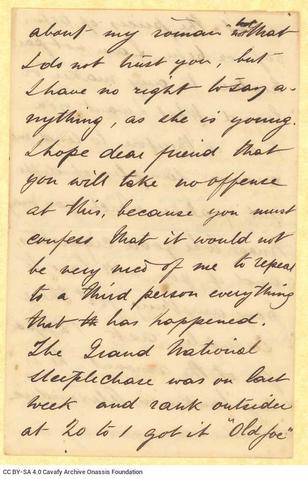 about my roman not that
I do not trust you, but
I have no right to say a-
nything, as she is young.
I hope dear friend that
you will take no offense
at this, because you must
confess that it would not
be very nice of me to repeat
to a third person everything
that has happened.
The Grand National
Steeplechase was on last
week and rank outsider
at 20 to 1 got it "Old Joe"
CC BY-SA 4.0 Cavafy Archive Onassis Foundation